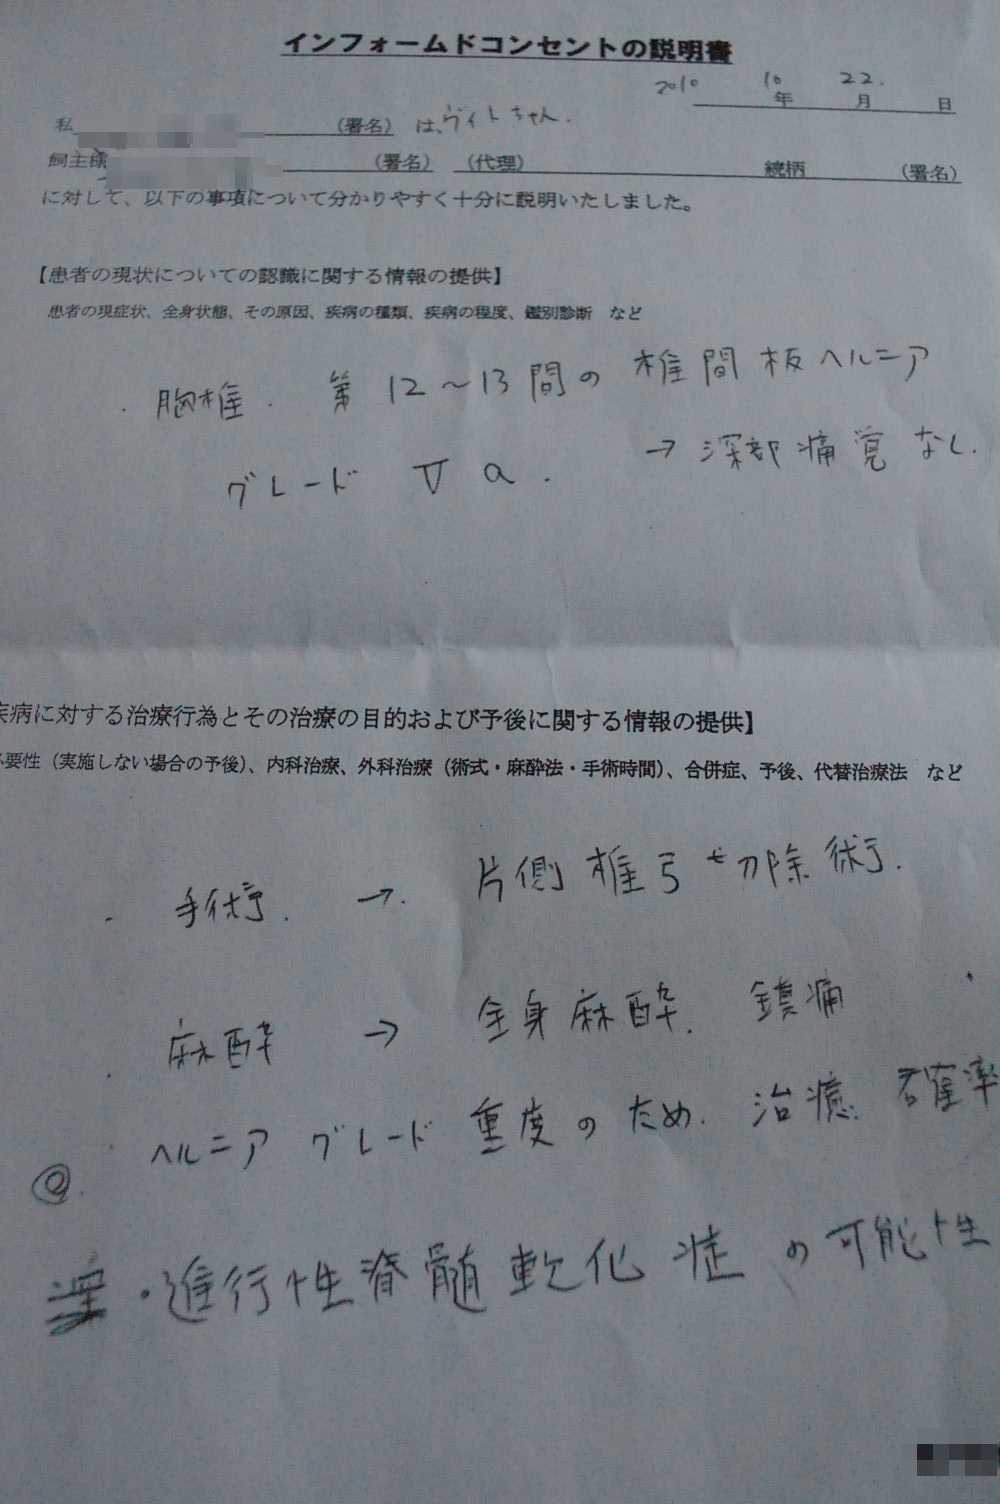 インフォームドコンセントの説明書
2010年 10月 22.日
私 (署名) は、ヴィトちゃん.
飼主様 (署名) (代理) 続柄 (署名)
に対して、以下の事項について分かりやすく十分に説明いたしました。
【患者の現状についての認識に関する情報の提供】
患者の現症状、全身状態、その原因、疾病の種類、疾病の程度、鑑別診断 など
・胸椎. 第12〜13間の椎間板ヘルニア
グレード Ⅴa. →深部痛覚なし.
疾病に対する治療行為とその治療の目的および予後に関する情報の提供】
必要性（実施しない場合の予後）、内科治療、外科治療（術式・麻酔法・手術時間）、合併症、予後、代替治療法 など
・手術. →. 片側椎弓切除術.
・麻酔 → 全身麻酔. 鎮痛
・ヘルニア グレード重度のため. 治癒 確率
・進行性脊髄軟化症の可能性